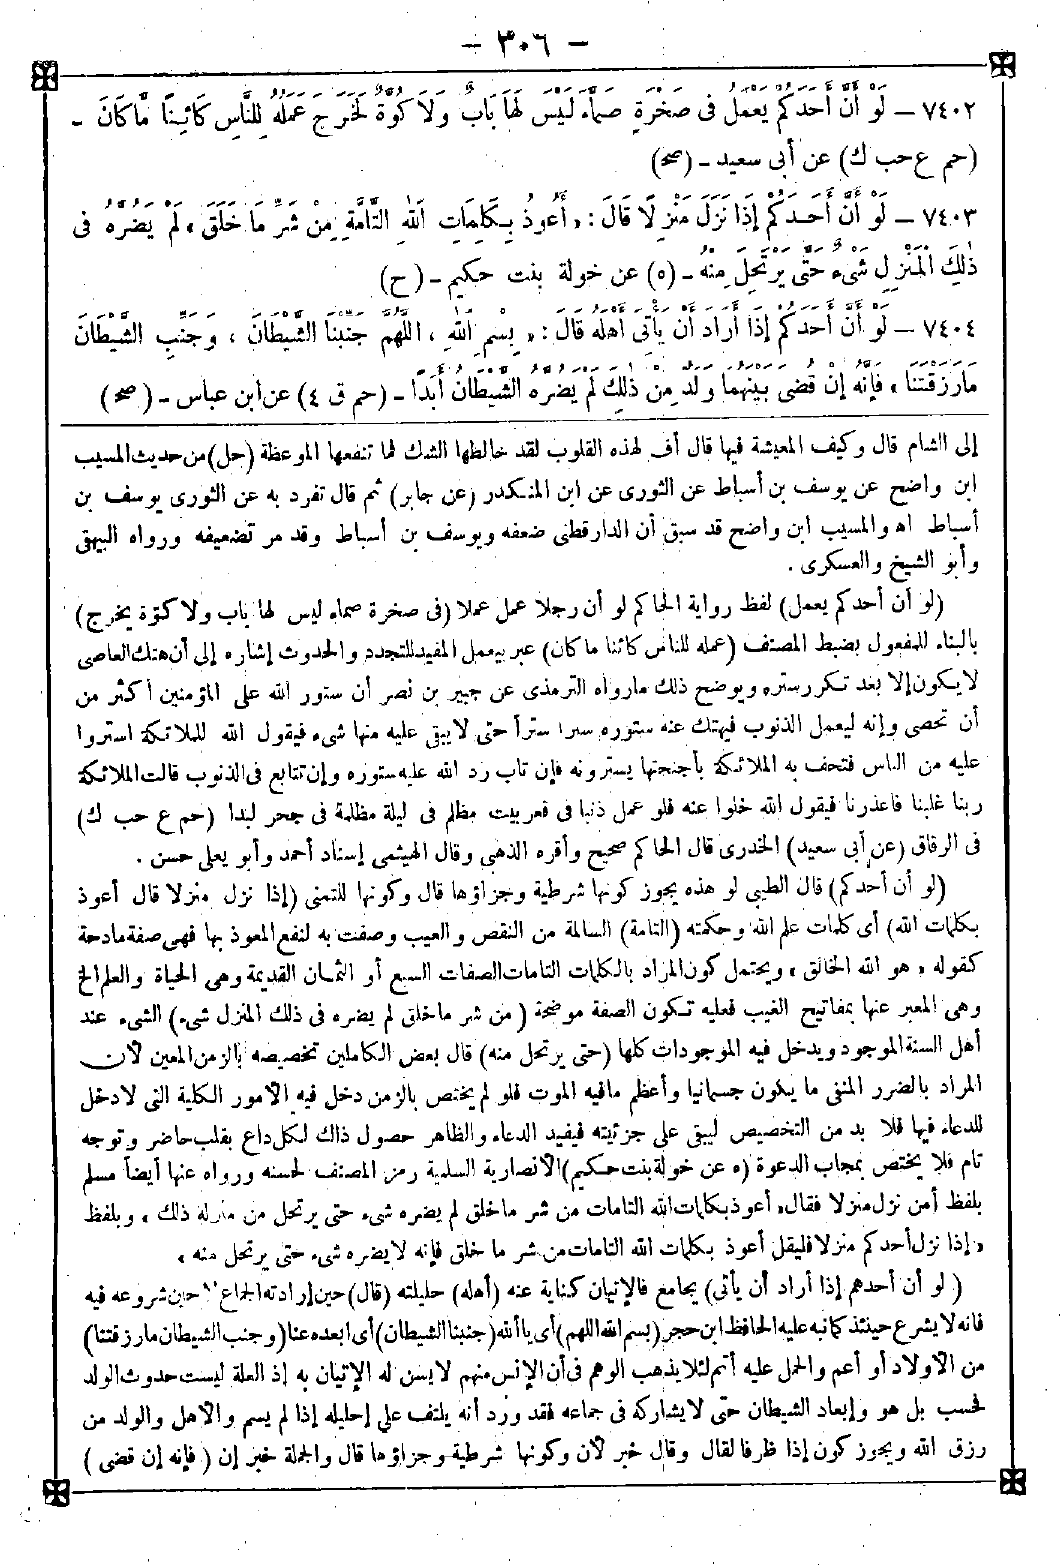 - ٣٠٦ -
٧٤٠٢ - لَوْ أَنَّ أَحَدَكُمْ يَعْمَلُ فِى صَخْرَةٍ صَمَّاءَ لَيْسَ لَهَا بَابٌ وَلَا كُوَّةٌ لَخَرَجَ عَمَلُهُ لِلنَّاسِ كَائِنًا مَا كَانَ -
(حم ع حب ك) عن أبى سعيد - (صح)
٧٤٠٣ - لَوْ أَنَّ أَحَدَكُمْ إِذَا نَزَلَ مَنْزِلًا قَالَ: «أَعُوذُ بِكَلِمَاتِ اللهِ التَّامَّةِ مِنْ شَرِّ مَا خَلَقَ» لَمْ يَضُرَّهُ فِى
ذٰلِكَ الْمَنْزِلِ شَىْءٌ حَتَّى يَرْتَحِلَ مِنْهُ - (ه) عن خولة بنت حكيم - (ح)
٧٤٠٤ - لَوْ أَنَّ أَحَدَكُمْ إِذَا أَرَادَ أَنْ يَأْتِىَ أَهْلَهُ قَالَ: «بِسْمِ اللهِ، اللَّهُمَّ جَنِّبْنَا الشَّيْطَانَ، وَجَنِّبِ الشَّيْطَانَ
مَا رَزَقْتَنَا» فَإِنَّهُ إِنْ قُضِىَ بَيْنَهُمَا وَلَدٌ مِنْ ذٰلِكَ لَمْ يَضُرَّهُ الشَّيْطَانُ أَبَدًا - (حم ق ٤) عن ابن عباس - (صح)
إلى الشام قال وكيف المعيشة فيها قال أف لهذه القلوب لقد خالطها الشك فما تنفعها الموعظة (حل) من حديث المسيب
ابن واضح عن يوسف بن أسباط عن الثورى عن ابن المنكدر (عن جابر) ثم قال تفرد به عن الثورى يوسف بن
أسباط اه والمسيب ابن واضح قد سبق أن الدارقطنى ضعفه ويوسف بن أسباط وقد مر تضعيفه ورواه البيهقى
وأبو الشيخ والعسكرى .
(لو أن أحدكم يعمل) لفظ رواية الحاكم لو أن رجلا عمل عملا (فى صخرة صماء ليس لها باب ولا كوة يخرج)
بالبناء للمفعول بضبط المصنف (عمله للناس كائنا ما كان) عبر بيعمل المفيد للتجدد والحدوث إشاره إلى أن هتك العاصى
لا يكون إلا بعد تكرر ستره ويوضح ذلك ما رواه الترمذى عن جبير بن نصر أن ستور الله على المؤمنين أكثر من
أن تحصى وإنه ليعمل الذنوب فيهتك عنه ستوره سترا سترأ حتى لا يبقى عليه منها شىء فيقول الله للملائكة استروا
عليه من الناس فتحف به الملائكة بأجنحتها يسترونه فإن تاب رد الله عليه ستوره وإن تتابع فى الذنوب قالت الملائكة
ربنا غلبنا فاعذرنا فيقول الله خلوا عنه فلو عمل ذنبا فى قعر بيت مظلم فى ليلة مظلمة فى جحر لبدا (حم ع حب ك)
فى الرقاق (عن أبى سعيد) الخدرى قال الحاكم صحيح وأقره الذهبى وقال الهيثمى إسناد أحمد وأبو يعلى حسن .
(لو أن أحدكم) قال الطيبى لو هذه يجوز كونها شرطية وجزاؤها قال وكونها للتمنى (إذا نزل منزلا قال أعوذ
بكلمات الله) أى كلمات علم الله وحكمته (التامة) السالمة من النقص والعيب وصفت به لنفع المعوذ بها فهى صفة مادحة
كقوله «هو الله الخالق» ويحتمل كون المراد بالكلمات التامات الصفات السبع أو الثمان القديمة وهى الحياة والعلم الخ
وهى المعبر عنها بمفاتيح الغيب فعليه تكون الصفة موضحة (من شر ما خلق لم يضره فى ذلك المنزل شىء) الشىء عند
أهل السنة الموجود ويدخل فيه الموجودات كلها (حتى يرتحل منه) قال بعض الكاملين تخصيصه بالزمن المعين لأن
المراد بالضرر المنفى ما يكون جسمانيا وأعظم مافيه الموت فلو لم يختص بالزمن دخل فيه الأمور الكلية التى لا دخل
للدعاء فيها فلا بد من التخصيص ليبقى على جزئيته فيفيد الدعاء والظاهر حصول ذاك لكل داع بقلب حاضر وتوجه
تام فلا يختص بمجاب الدعوة (ه عن خولة بنت حكيم) الأنصارية السلمية رمز المصنف لحسنه ورواه عنها أيضاً مسلم
بلفظ أمن نزل منزلا فقال «أعوذ بكلمات الله التامات من شر ما خلق لم يضره شىء حتى يرتحل من منزله ذلك» وبلفظ
«إذا نزل أحدكم منزلا فليقل أعوذ بكلمات الله التامات من شر ما خلق فإنه لا يضره شىء حتى يرتحل منه»
(لو أن أحدهم إذا أراد أن يأتى) يجامع فالإتيان كناية عنه (أهله) حليلته (قال) حين إرادته الجماع لا حين شروعه فيه
فانه لا يشرع حينئذ كما نبه عليه الحافظ ابن حجر (بسم الله اللهم) أى يا ألله (جنبنا الشيطان) أى ابعده عنا (وجنب الشيطان ما رزقتنا)
من الأولاد أو أعم والحمل عليه أتم لئلا يذهب الوهم فى أن الإنس منهم لا يسن له الإتيان به إذ العلة ليست حدوث الولد
فحسب بل هو وإبعاد الشيطان حتى لا يشاركه فى جماعه فقد ورد أنه يلتف على إحليله إذا لم يسم والأهل والولد من
رزق الله ويجوز كون إذا ظرفا لقال وقال خبر لأن وكونها شرطية وجزاؤها قال والجملة خبر إن (فإنه إن قضى)